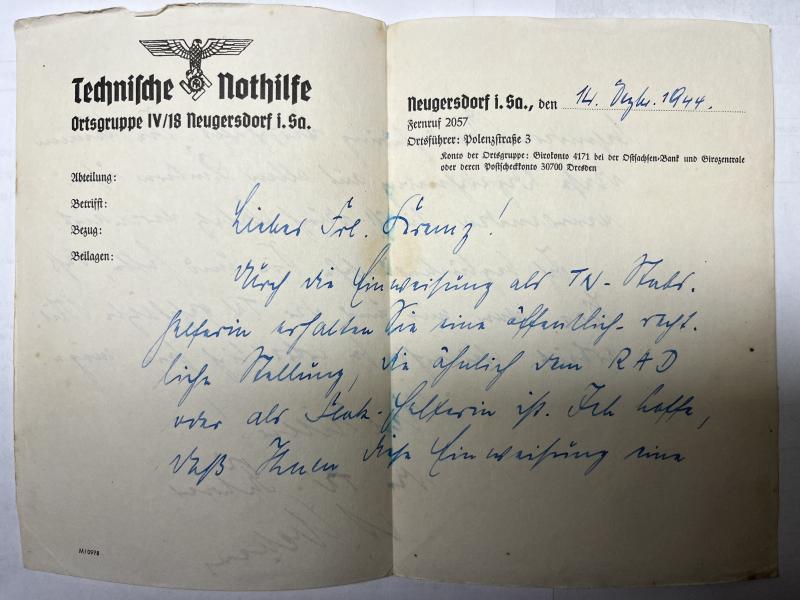 Technische Nothilfe
Ortsgruppe IV/18 Neugersdorf i. Sa.
Neugersdorf i. Sa., den 14. Dezbr. 1944.
Fernruf 2057
Ortsführer: Polenzstraße 3
Konto der Ortsgruppe: Girokonto 4171 bei der Ostsachsen-Bank und Girozentrale
oder deren Postscheckkonto 30700 Dresden
Abteilung:
Betrifft:
Bezug:
Beilagen:
Liebes Frl. !
Durch die Einweisung als TN-Stabs-
helferin erhalten Sie eine öffentlich-recht-
liche Stellung, die ähnlich dem RAD
oder als Flak-Helferin ist. Ich hoffe,
daß Ihnen diese Einweisung eine
M/0978